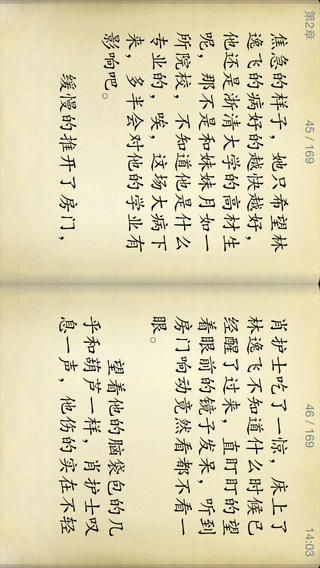 第2章
45 / 169
焦急的样子，她只希望林
逸飞的病好的越快越好，
他还是浙清大学的高材生
呢，那不是和妹妹月如一
所院校，不知道他是什么
专业的，唉，这场大病下
来，多半会对他的学业有
影响吧。
缓慢的推开了房门，
46 / 169
14:03
肖护士吃了一惊，床上了
林逸飞不知道什么时候已
经醒了过来，直盯盯的望
着眼前的镜子发呆，听到
房门响动竟然看都不看一
眼。
望着他的脑袋包的几
乎和葫芦一样，肖护士叹
息一声，他伤的实在不轻